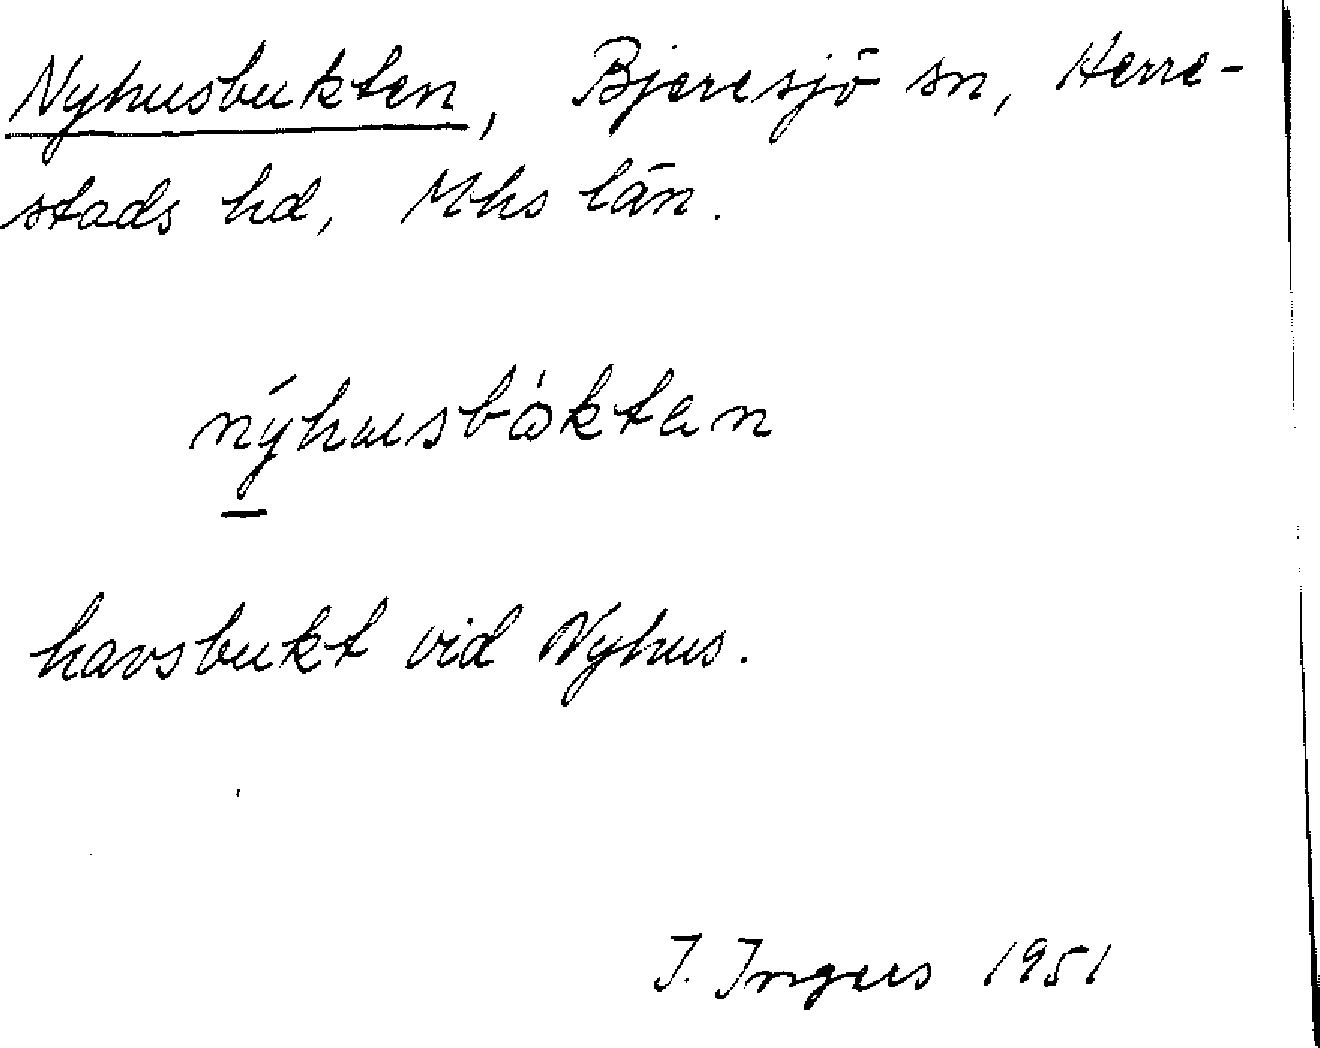 Nyhusbukten, Bjeresjö sn, Herre-
stads hd, Mhs län.
nýhusbòktan
havsbukt vid Nyhus.
I. Ingers 1951